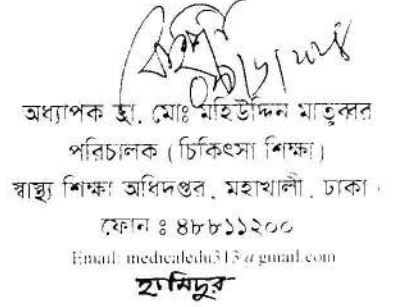 অধ্যাপক ডা. মোঃ মহিউদ্দিন মাতুব্বর
পরিচালক (চিকিৎসা শিক্ষা)
স্বাস্থ্য শিক্ষা অধিদপ্তর, মহাখালী, ঢাকা।
ফোন ঃ ৪৮৮১১২০০
Email: medicaledu313@gmail.com
হামিদুর